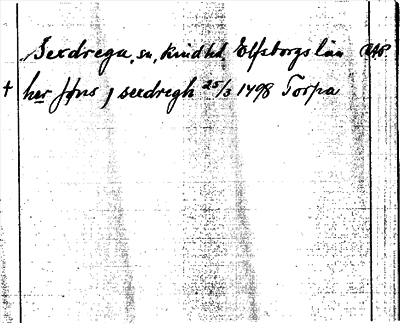 Sexdrega, sn, Kind hd Elfsborgs län
+ her Jöns j sexdregh 25/3 1498 Torpa